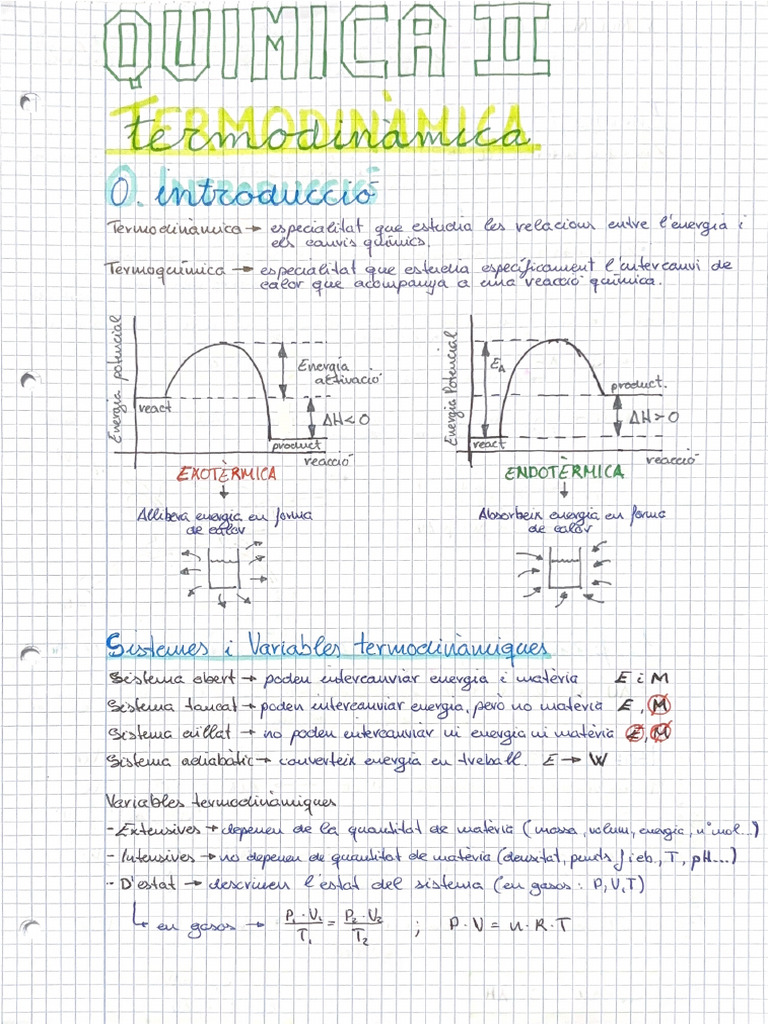 QUIMICA II
TERMODINÀMICA
termodinàmica
0. INTRODUCCIÓ
0. introducció
Termodinàmica → especialitat que estudia les relacions entre l'energia i
els canvis químics.
Termoquímica → especialitat que estudia específicament l'intercanvi de
calor que acompanya a una reacció química.
Energia potencial
react
Energía
activació
ΔH<0
product
reacció
EXOTÈRMICA
Allibera energia en forma
de calor
Energia Potencial
EA
react
product.
ΔH>0
reacció
ENDOTÈRMICA
Absorbeix energia en forma
de calor
Sistemes i Variables termodinàmiques
Sistema obert → poden intercanviar energia i matèria E i M
Sistema tancat → poden intercanviar energia, però no matèria E, M
Sistema aïllat → no poden intercanviar ni energia ni matèria E, M
Sistema adiabàtic → converteix energia en treball. E → W
Variables termodinàmiques
- Extensives → depenen de la quantitat de matèria (massa, volum, energia, nº mol...)
- Intensives → no depenen de quantitat de matèria (densitat, punts f i eb., T, pH...)
- D'estat → descriuen l'estat del sistema (en gasos: P, V, T)
↳ en gasos → P₁·V₁/T₁ = P₂·V₂/T₂ ; P·V = n·R·T